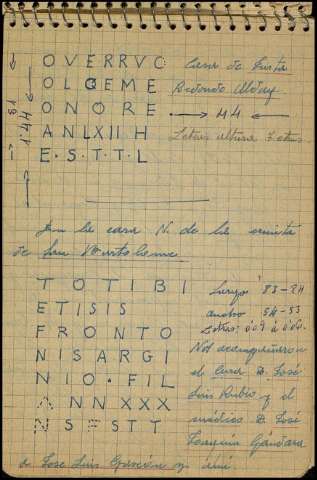 OVERRVC
OLOEME
ONORE
ANLXIIH
E·S·T·T·L
Casa de Justa
Redondo
44
Letras altura
1'44
En la cara N. de la ermita
de San Bartolomé
TOTIBI
ETISIS
FRONTO
NISARGI
NIO·FIL
ANNXXX
NSFSTT
Largo 83-84
ancho 54-53
Letras: 0'07 a 0'06.
Nos acompañaron
el cura D. José
Luis Rubio y el
médico D. José
Joaquín Gándara